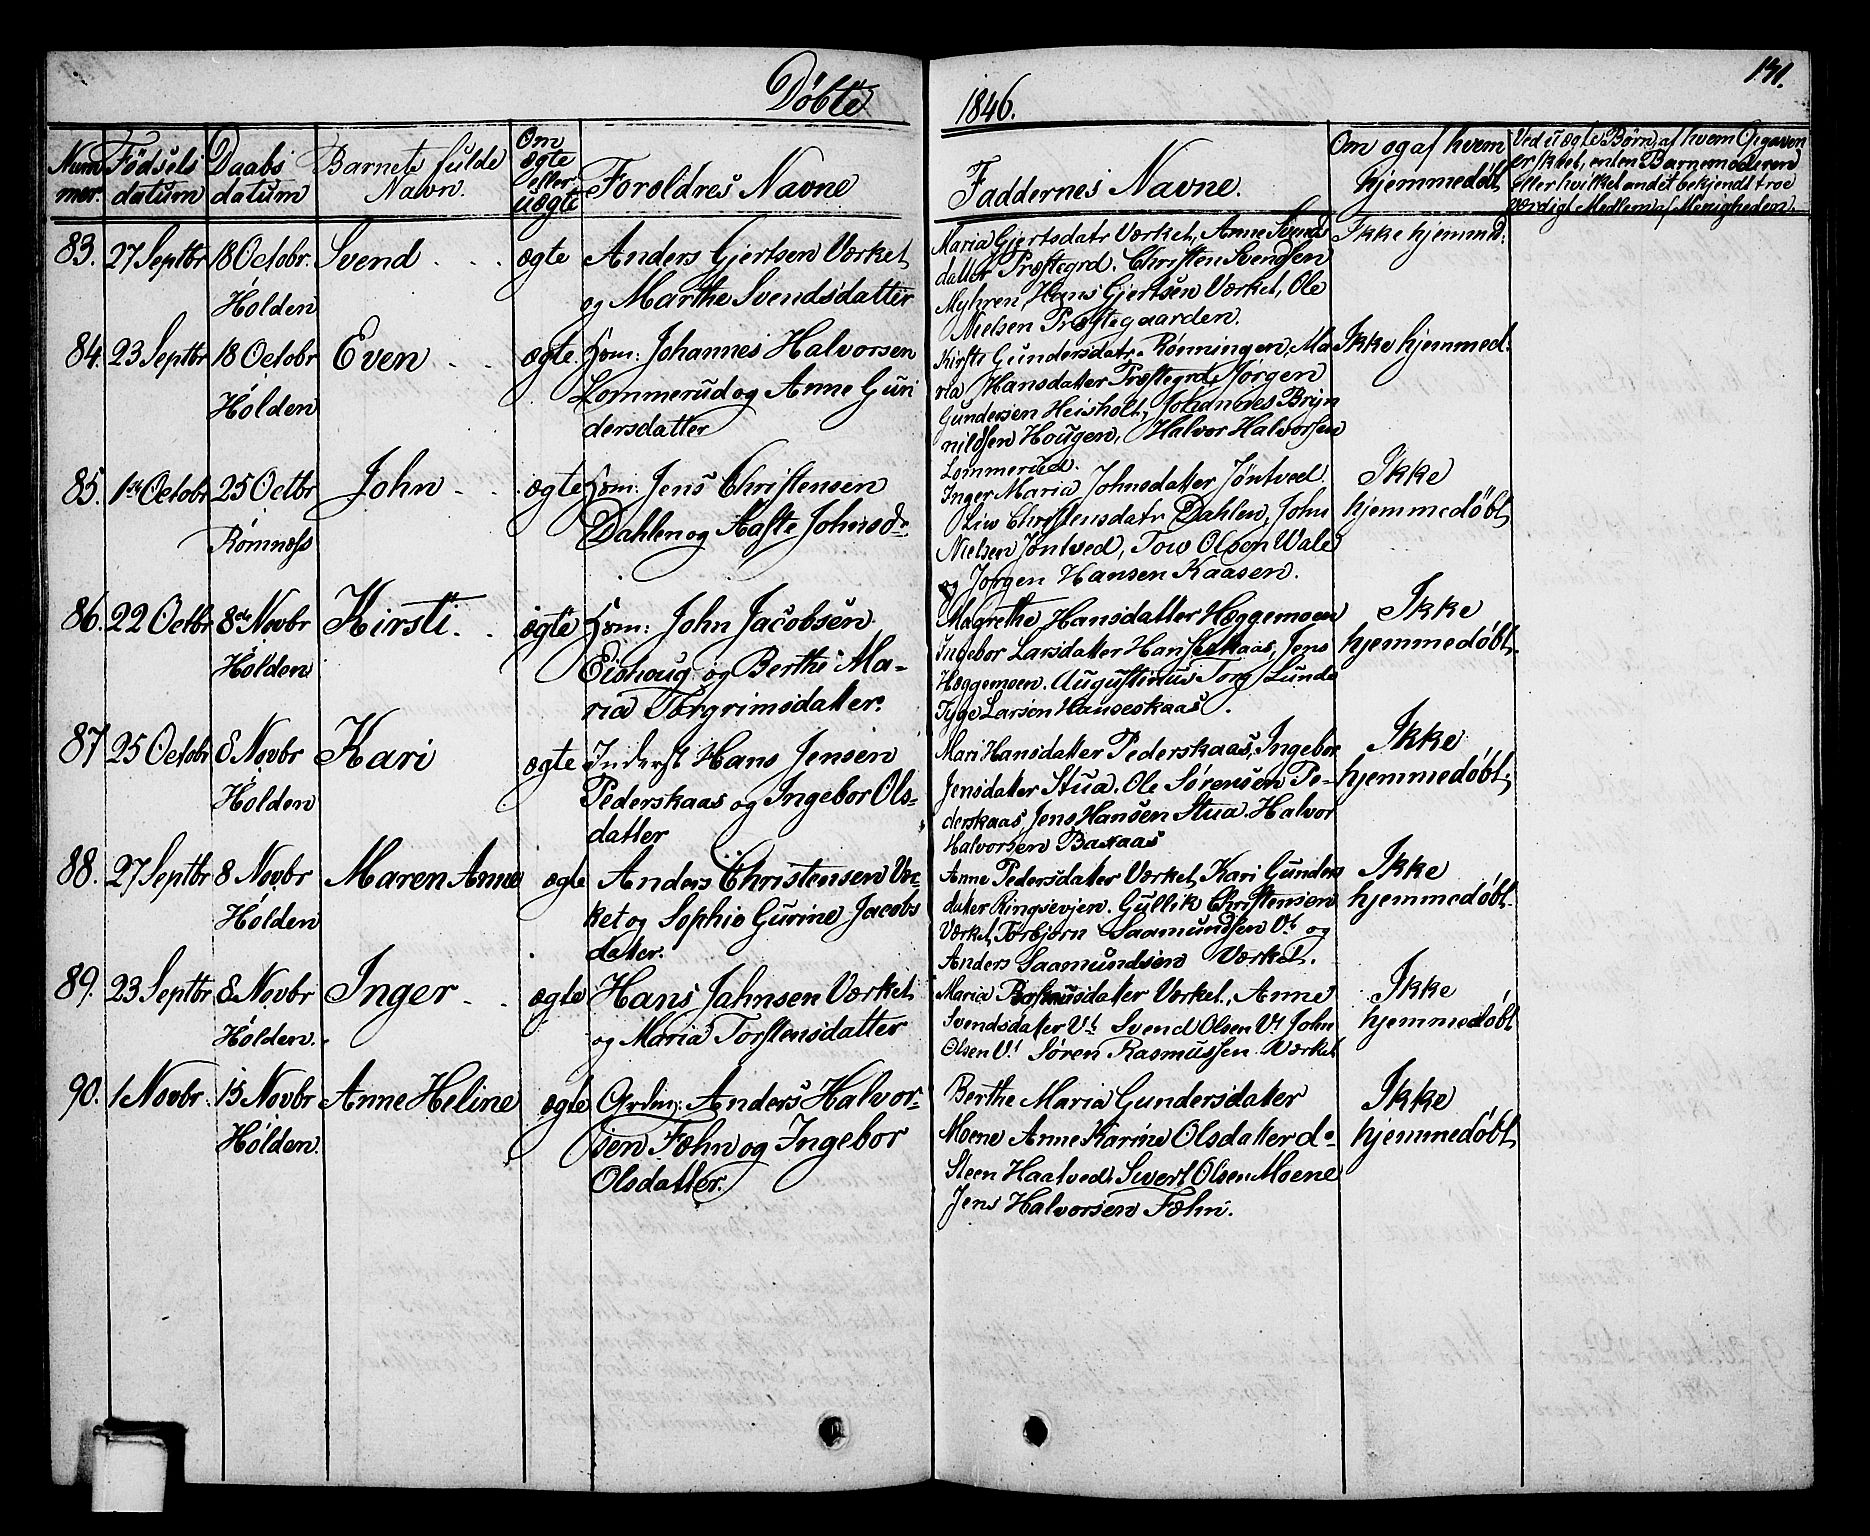 Döbte
1846.
141.
Num
mer.
Födsels
datum
Daabs
datum
Barnets fulde
Navn.
Om
ægte
eller
uægte
Foroldres Navne
Faddernes Navne.
Om og af hvem
hjemmedøbt
Ved uægte Børn, af hvem Opgaven
er skeet, enten Barnemoderen
eller hvilket andet bekjendt troe
værdigt Medlem af Menigheden.
83. 27 Septbr 18 Octobr. Svend . . . ægte Anders Gjertsen Værket,
Holden og Marthe Svendsdatter
Maria Gjertsdatr Værket, Anne Svends
datter Præstegrd. Christen Svendsen
Myhren, Hans Gjertsen Værket, Ole
Nielsen Præstegaarden.
Ikke hjemmed:
84. 23 Septbr 18 Octobr Even . . ægte. Hom: Johannes Halvorsen
Holden Lommerud og Anne Gun
dersdatter
Kirsti Gundersdatr. Rønningen, Ma
ria Hansdatter Præstegrd, Jørgen
Gundersen Heisholt, Johannes Bryn
nildsen Hougen, Halvor Halvorsen
Lommerud.
Ikke hjemmed:
85. 1ste Octobr 25 Octbr John . . ægte Hom: Jens Christensen
Romnæss Dahlen og Aaste Johnsd.
Inger Maria Johnsdatter Jöntved.
Liv Christensdatr Dahlen, John
Nielsen Jöntved, Tov Olsen Wale
og Jørgen Hansen Kaasen.
Ikke
hjemmedøbt,
86. 22 Octbr 8de Novbr Kirsti . . ægte Hom: John Jacobsen
Holden Eishoug og Berthe Ma-
ria Torgrimsdatter.
Magrethe Hansdatter Hæggemoen
Ingebor Larsdatter Hanseskaas, Jens
Hæggemoen. Augustinus Torg Lunde
Tyge Larsen Hanseskaas.
Ikke
hjemmedøbt.
87 25 Octobr 8 Novbr Kari ægte Inderst Hans Jensen
Holden Pederskaas og Ingebor Ols-
datter
Mari Hansdatter Pederskaas, Ingebor
Jensdatter Stua. Ole Sørensen Pe-
derskaas, Jens Hansen Stua. Halvor
Halvorsen Baxaas
Ikke
hjemmedøbt,
88. 27 Septbr 8 Novbr Maren Anne ægte Anders Christensen Vær-
Holden ket og Sophie Gurine Jacobs
datter.
Anne Pedersdatter Værket, Kari Gunders
datter Ringsevjen. Gullik Christensen
Værket, Torbjørn Saamundsen Vt og
Anders Saamundsen Værket.
Ikke
hjemmedøbt.
89. 23 Septbr, 8 Novbr Inger . . ægte Hans Jahnsen Værket,
Holden. og Maria Torstensdatter
Maria Rasmusdatter Værket, Anne
Svendsdatter Vt Svend Olsen Vt John
Olsen Vt Søren Rasmussen Værket
Ikke
hjemmedøbt
90. 1 Novbr. 15 Novbr Anne Heline ægte Ordin: Anders Halvor-
Holden. sen Fæhn og Ingebor
Olsdatter.
Berthe Maria Gundersdatter
Moene Anne Karine Olsdatter do
Steen Haatvedt, Sivert Olsen Moene
Jens Halvorsen Fæhn.
Ikke
hjemmedøbt,